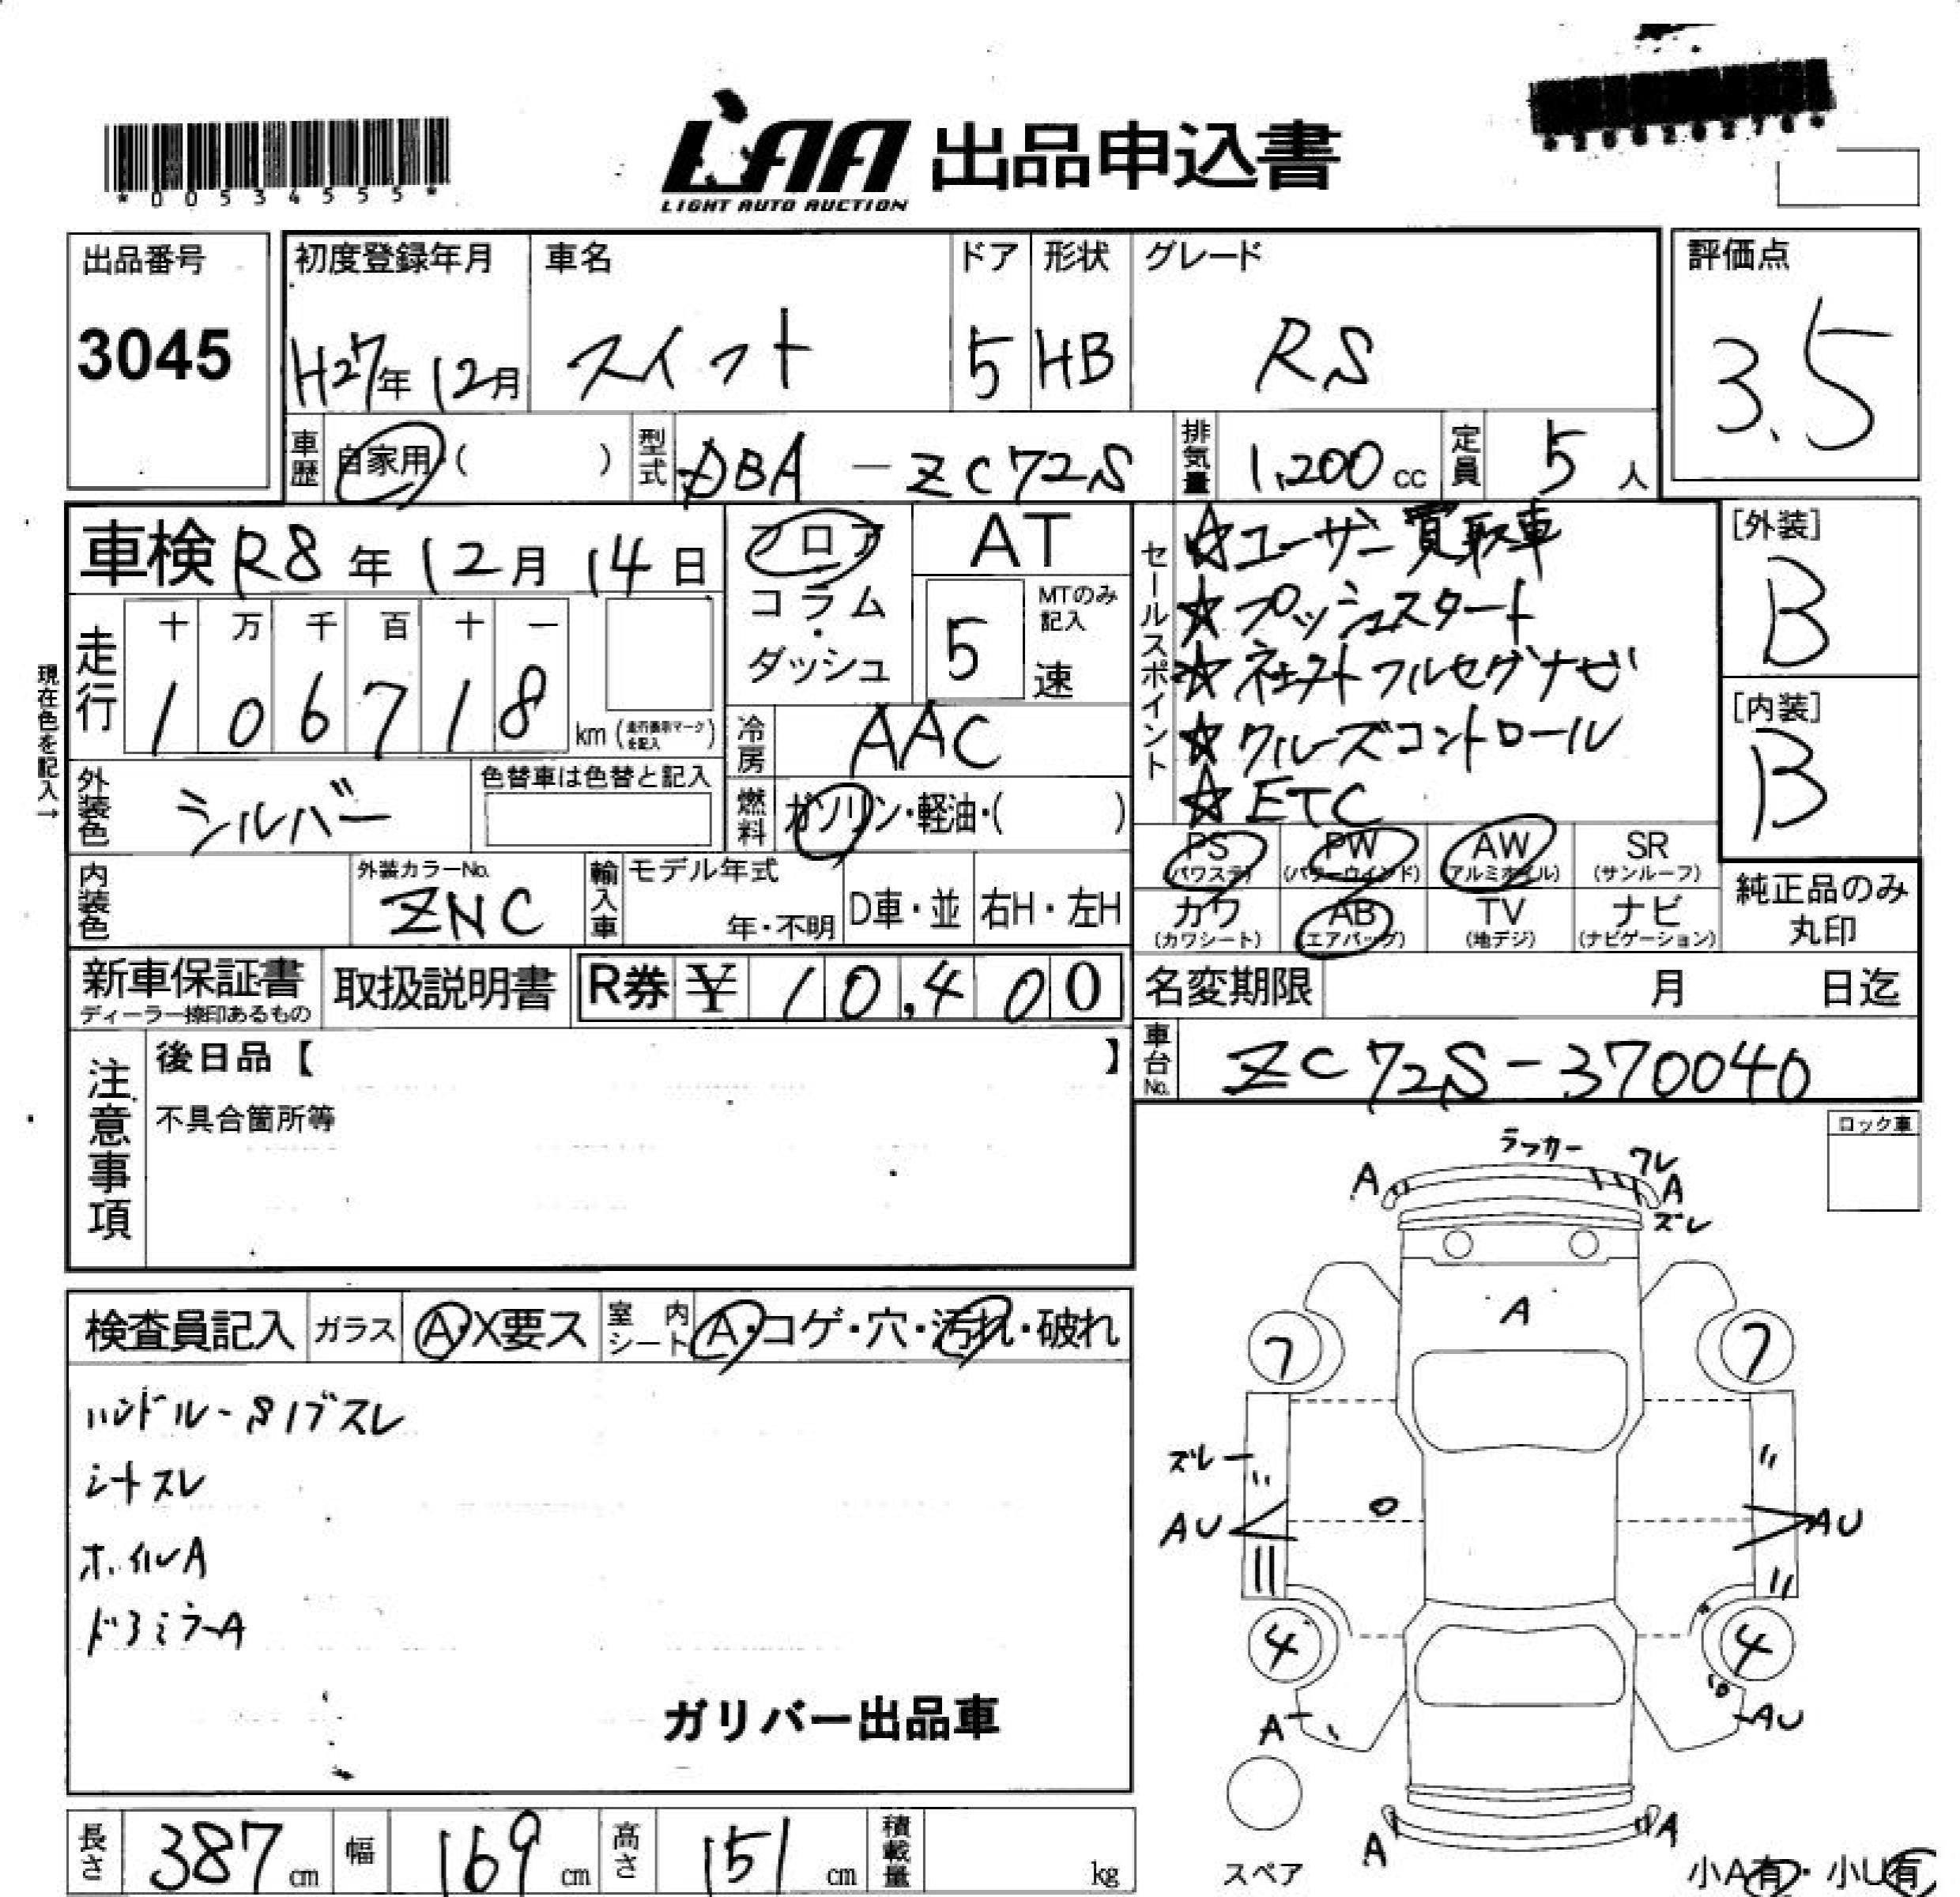 *00534555*
LAA 出品申込書
LIGHT AUTO AUCTION
出品番号
3045
初度登録年月 車名 ドア 形状 グレード
H27年 12月 スイフト 5 HB RS
評価点
3.5
車歴 自家用・( ) 型式 DBA-ZC72S 排気量 1,200cc 定員 5人
車検 R8年 12月 14日
フロア
コラム・
ダッシュ
AT
5 MTのみ記入
速
走行 十 万 千 百 十 一
1 0 6 7 1 8 km (走行表示マークを記入)
現在色を記入→
冷房 AAC
外装色 シルバー 色替車は色替と記入
燃料 ガソリン・軽油・( )
セールスポイント
☆ユーザー買取車
☆プッシュスタート
☆社外フルセグナビ
☆クルーズコントロール
☆ETC
[外装]
B
[内装]
B
PS (パワステ) PW (パワーウインド) AW (アルミホイル) SR (サンルーフ)
カワ (カワシート) AB (エアバッグ) TV (地デジ) ナビ (ナビゲーション)
純正品のみ
丸印
内装色 外装カラーNo. ZNC 輸入車 モデル年式 年・不明 D車・並 右H・左H
新車保証書 ディーラー捺印あるもの 取扱説明書 R券 ¥ 10,400
名変期限 月 日迄
車台No. ZC72S-370040
注意事項
後日品【 】
不具合箇所等
ロック車
検査員記入 ガラス A・X要ス 室内シート A・コゲ・穴・汚れ・破れ
ハンドル-Sノブスレ
シートスレ
ホイルA
ドアミラーA
ガリバー出品車
ラッカー ワレ
A A
ズレ
A
7 7
ズレ
AU AU
4 4
A AU
A A
スペア
小A有・小U有
長さ 387cm 幅 169cm 高さ 151cm 積載量 kg